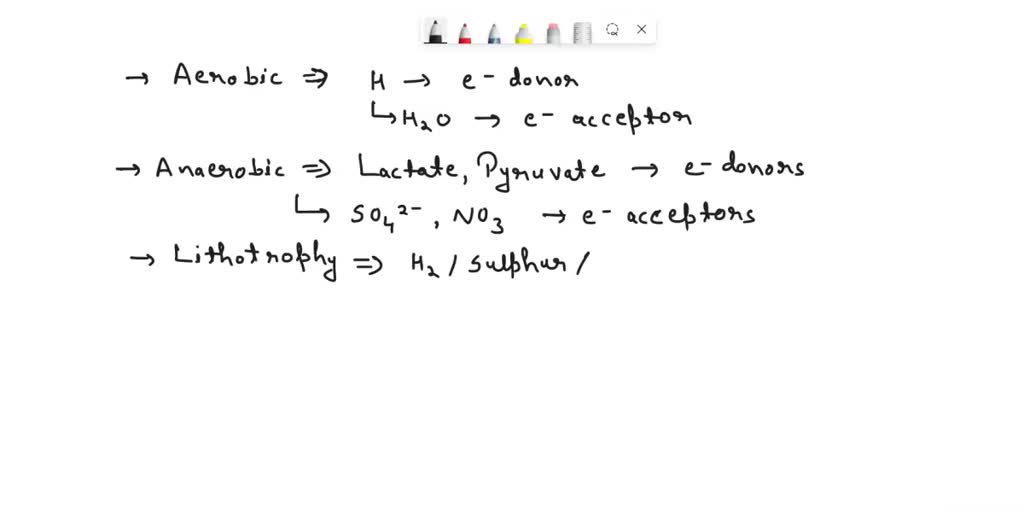 → Aerobic ⇒ H → e- donor
↳ H₂O → e- acceptor
→ Anaerobic ⇒ Lactate, Pyruvate → e- donors
↳ SO₄²⁻, NO₃ → e- acceptors
→ Lithotrophy ⇒ H₂ / Sulphur /